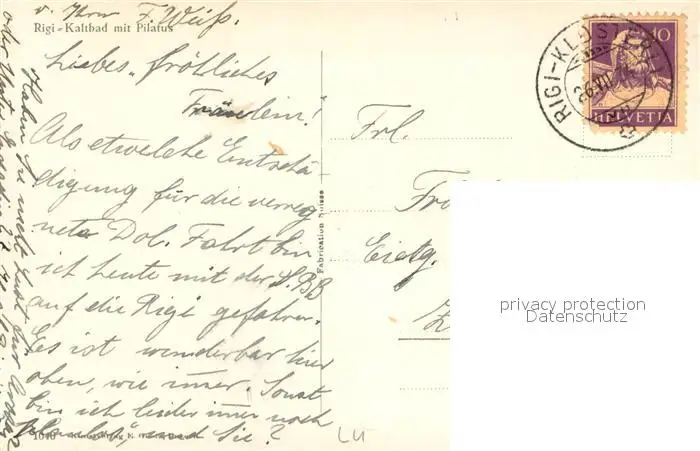 v. Ihrm F. Weiß.
Rigi-Kaltbad mit Pilatus
Liebes, fröhliches
Fräulein!
Als etwelche Entschä-
digung für die verreg
nete Dol. Fahrt bin
ich heute mit der S.B.B
auf die Rigi gefahren.
Es ist wunderbar hier
oben, wie immer. Sonst
bin ich leider immer noch
und Sie?
1040
Haben Sie nicht Lust
Fabrication Suisse
Frl.
Eidg.
RIGI-KLÖSTERLI
26.VII
10
HELVETIA
privacy protection
Datenschutz
LU